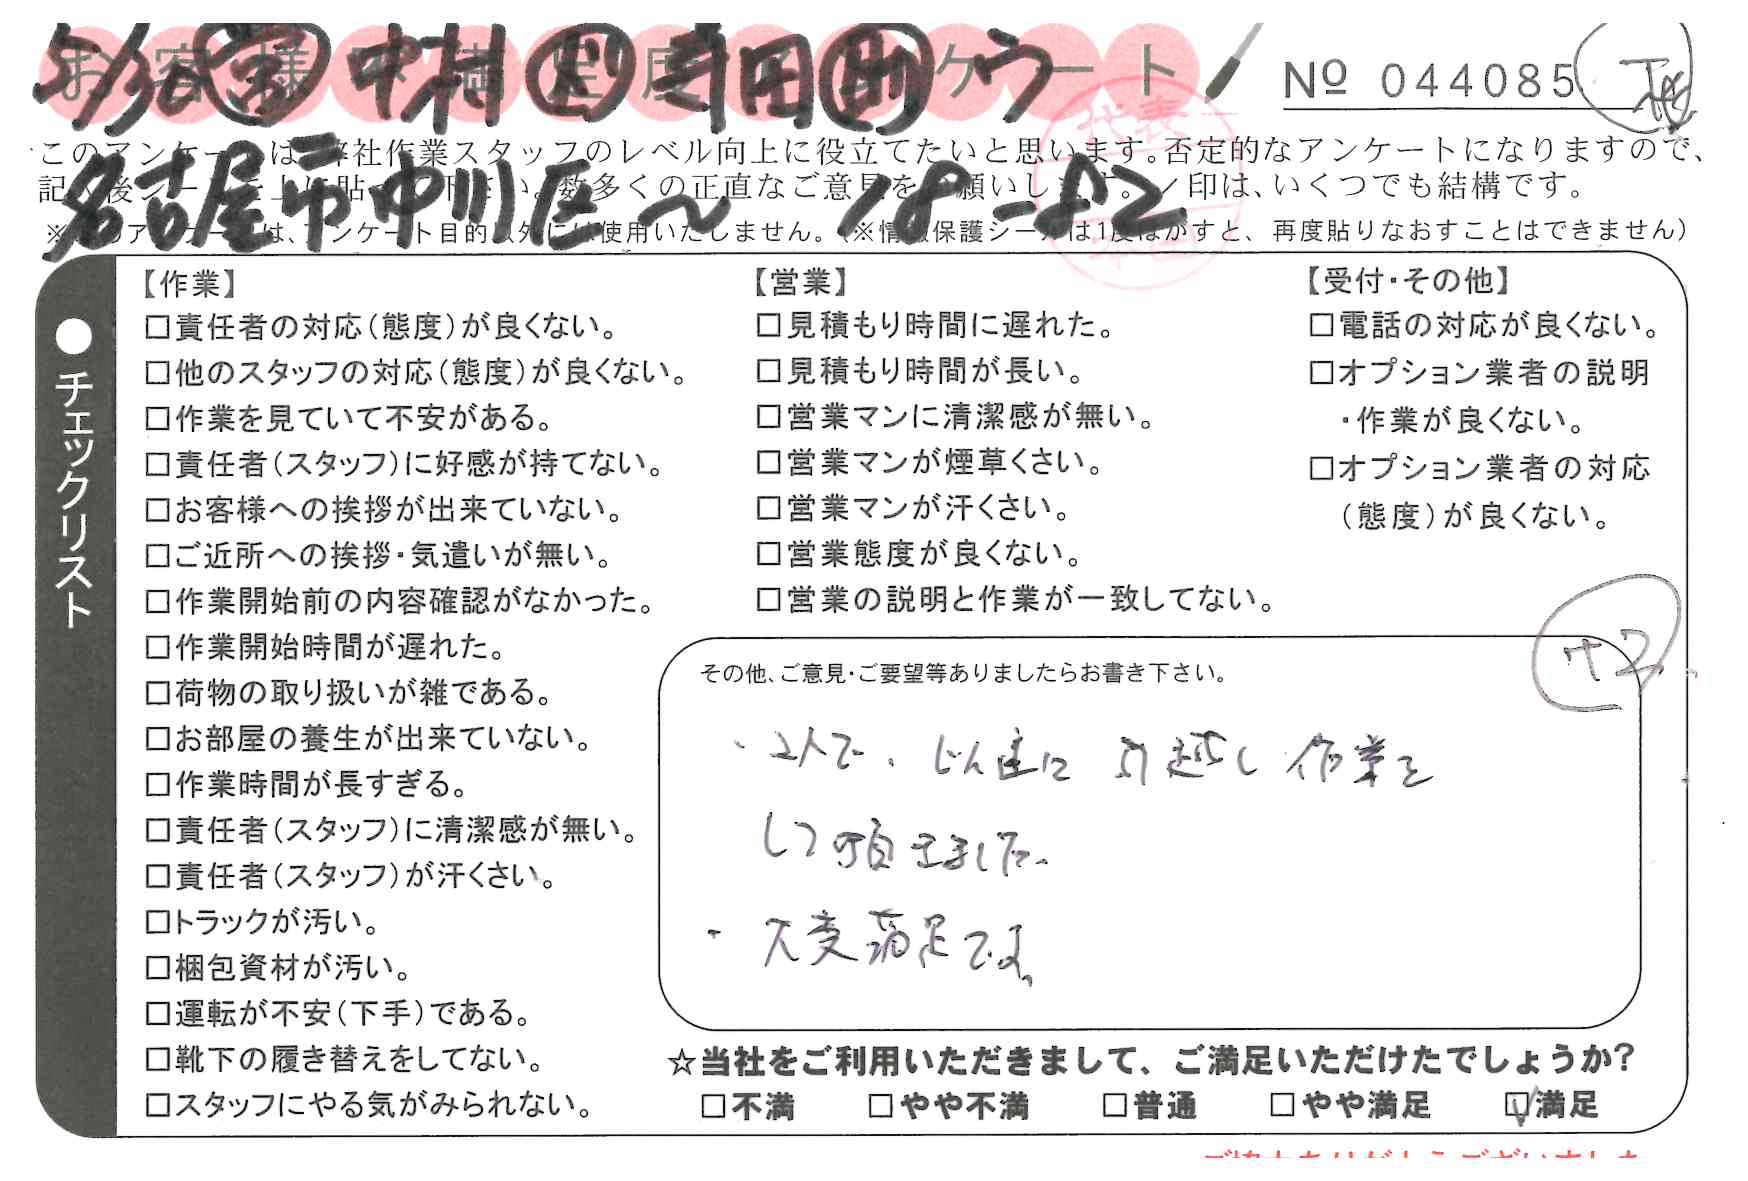 お客様不満足度アンケート
5/30 営 中村 ド 寺田 助 ウ
№ 044085
このアンケートは、弊社作業スタッフのレベル向上に役立てたいと思います。否定的なアンケートになりますので、
記入後シールを上に貼って下さい。数多くの正直なご意見をお願いします。✓印は、いくつでも結構です。
名古屋市中川区〜 18-52
※このアンケートは、アンケート目的以外には使用いたしません。(※情報保護シールは1度はがすと、再度貼りなおすことはできません)
代表
●チェックリスト
【作業】
□責任者の対応(態度)が良くない。
□他のスタッフの対応(態度)が良くない。
□作業を見ていて不安がある。
□責任者(スタッフ)に好感が持てない。
□お客様への挨拶が出来ていない。
□ご近所への挨拶・気遣いが無い。
□作業開始前の内容確認がなかった。
□作業開始時間が遅れた。
□荷物の取り扱いが雑である。
□お部屋の養生が出来ていない。
□作業時間が長すぎる。
□責任者(スタッフ)に清潔感が無い。
□責任者(スタッフ)が汗くさい。
□トラックが汚い。
□梱包資材が汚い。
□運転が不安(下手)である。
□靴下の履き替えをしてない。
□スタッフにやる気がみられない。
【営業】
□見積もり時間に遅れた。
□見積もり時間が長い。
□営業マンに清潔感が無い。
□営業マンが煙草くさい。
□営業マンが汗くさい。
□営業態度が良くない。
□営業の説明と作業が一致してない。
【受付・その他】
□電話の対応が良くない。
□オプション業者の説明
・作業が良くない。
□オプション業者の対応
(態度)が良くない。
+2
その他、ご意見・ご要望等ありましたらお書き下さい。
・2人で、じん速に引越し作業を
して頂きました。
・大変満足です。
☆当社をご利用いただきまして、ご満足いただけたでしょうか?
□不満 □やや不満 □普通 □やや満足 ☑満足
ご協力ありがとうございました